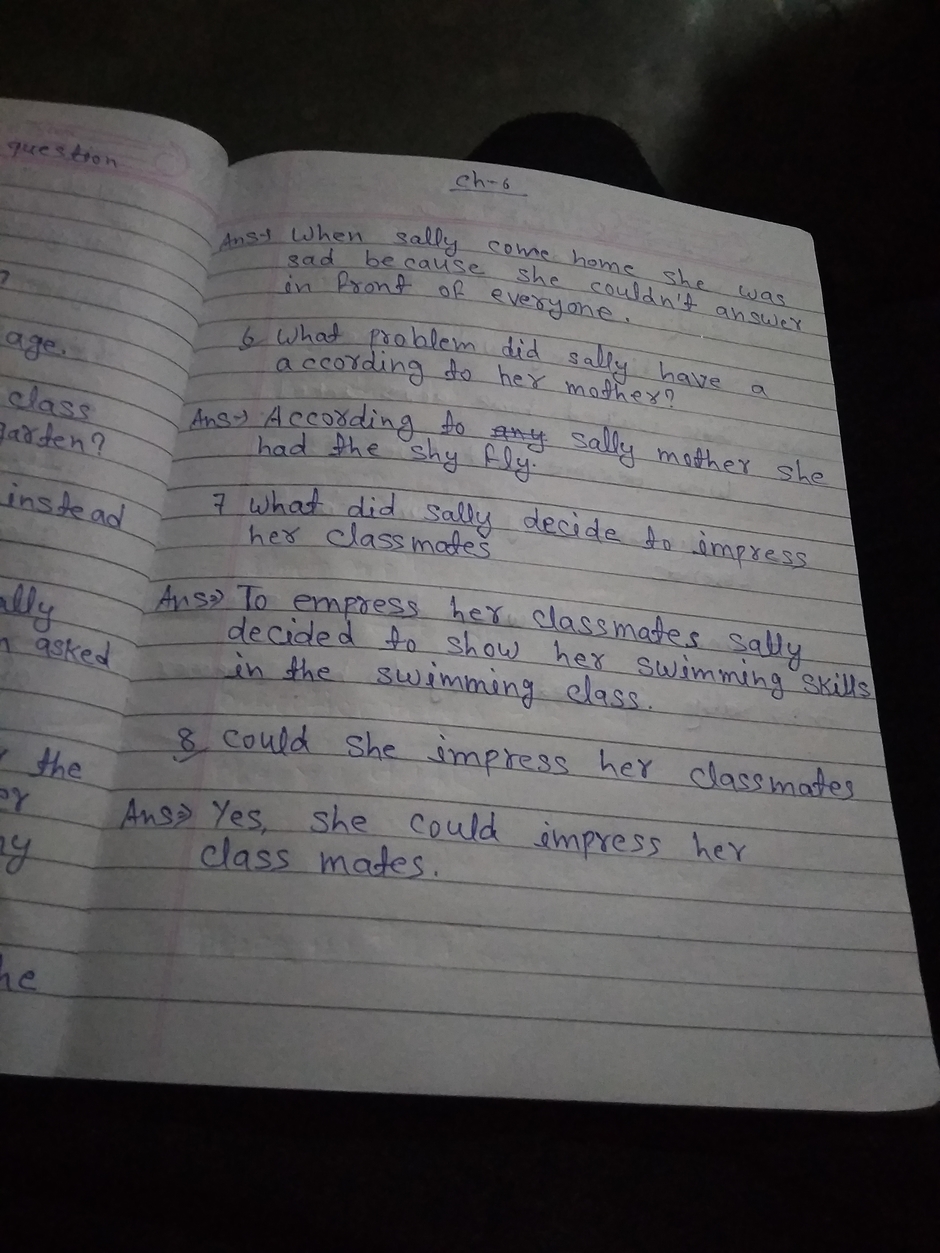 question
?
age.
class
garten?
instead
ally
n asked
the
er
ny
he
Ch-6
Ans→ When sally come home she was
sad because she couldn't answer
in front of everyone.
6 What problem did sally have a
according to her mother?
Ans→ According to any sally mother she
had the shy fly.
7 What did sally decide to impress
her classmates
Ans⇒ To empress her classmates sally
decided to show her swimming skills
in the swimming class.
8 Could she impress her classmates
Ans⇒ Yes, she could impress her
class mates.